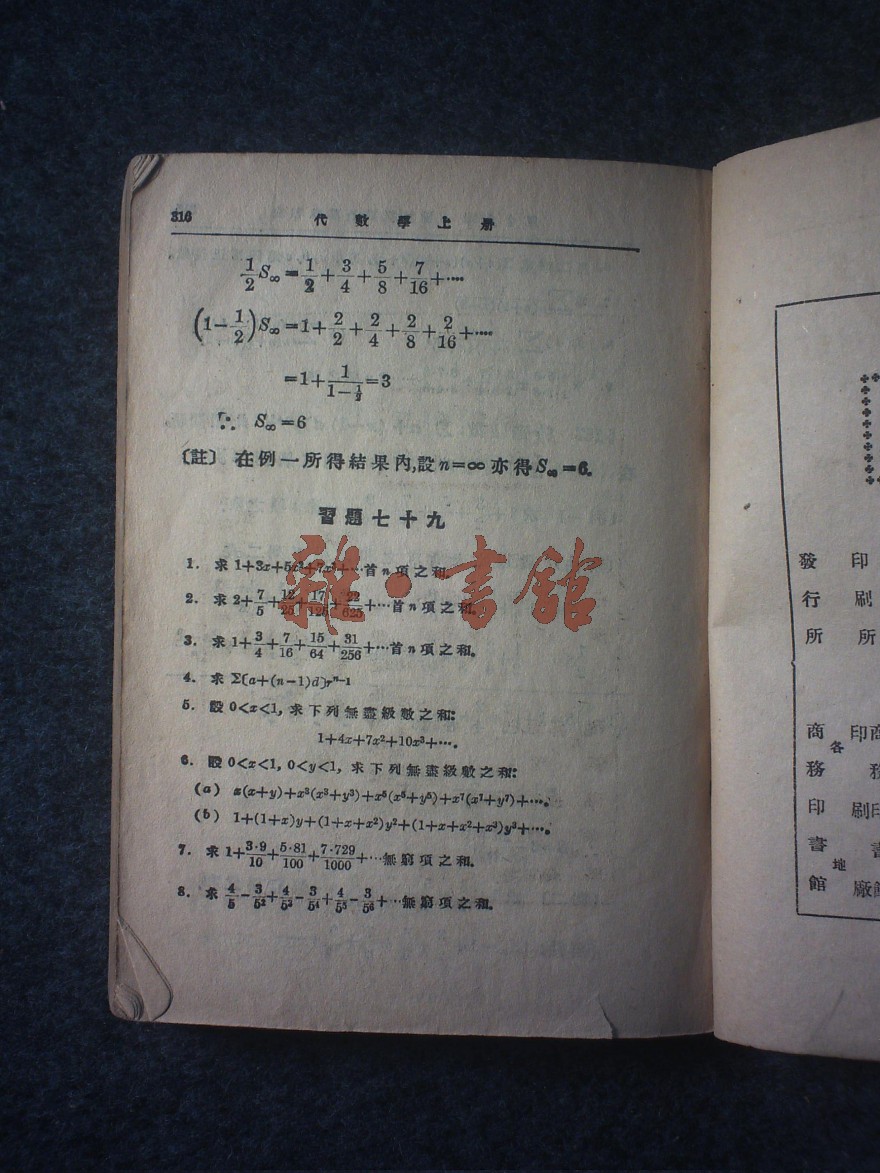 316 代數學上册
1/2 S∞=1/2+3/4+5/8+7/16+····
(1-1/2)S∞=1+2/2+2/4+2/8+2/16+····
=1+1/(1-1/2)=3
∴ S∞=6
〔註〕 在例一所得結果內,設n=∞亦得S∞=6.
習題七十九
1. 求1+3x+5x²+7x³+···首n項之和.
2. 求2+7/5+12/25+17/125+22/625+···首n項之和.
3. 求1+3/4+7/16+15/64+31/256+···首n項之和.
4. 求Σ〔a+(n-1)d〕rⁿ⁻¹
5. 設0<x<1,求下列無盡級數之和:
1+4x+7x²+10x³+···.
6. 設0<x<1,0<y<1,求下列無盡級數之和:
(a) x(x+y)+x³(x³+y³)+x⁵(x⁵+y⁵)+x⁷(x⁷+y⁷)+···.
(b) 1+(1+x)y+(1+x+x²)y²+(1+x+x²+x³)y³+···.
7. 求1+3·9/10+5·81/100+7·729/1000+···無窮項之和.
8. 求4/5-3/5²+4/5³-3/5⁴+4/5⁵-3/5⁶+···無窮項之和.
雜·書館
印刷所
發行所
印刷
各地
商務印書館